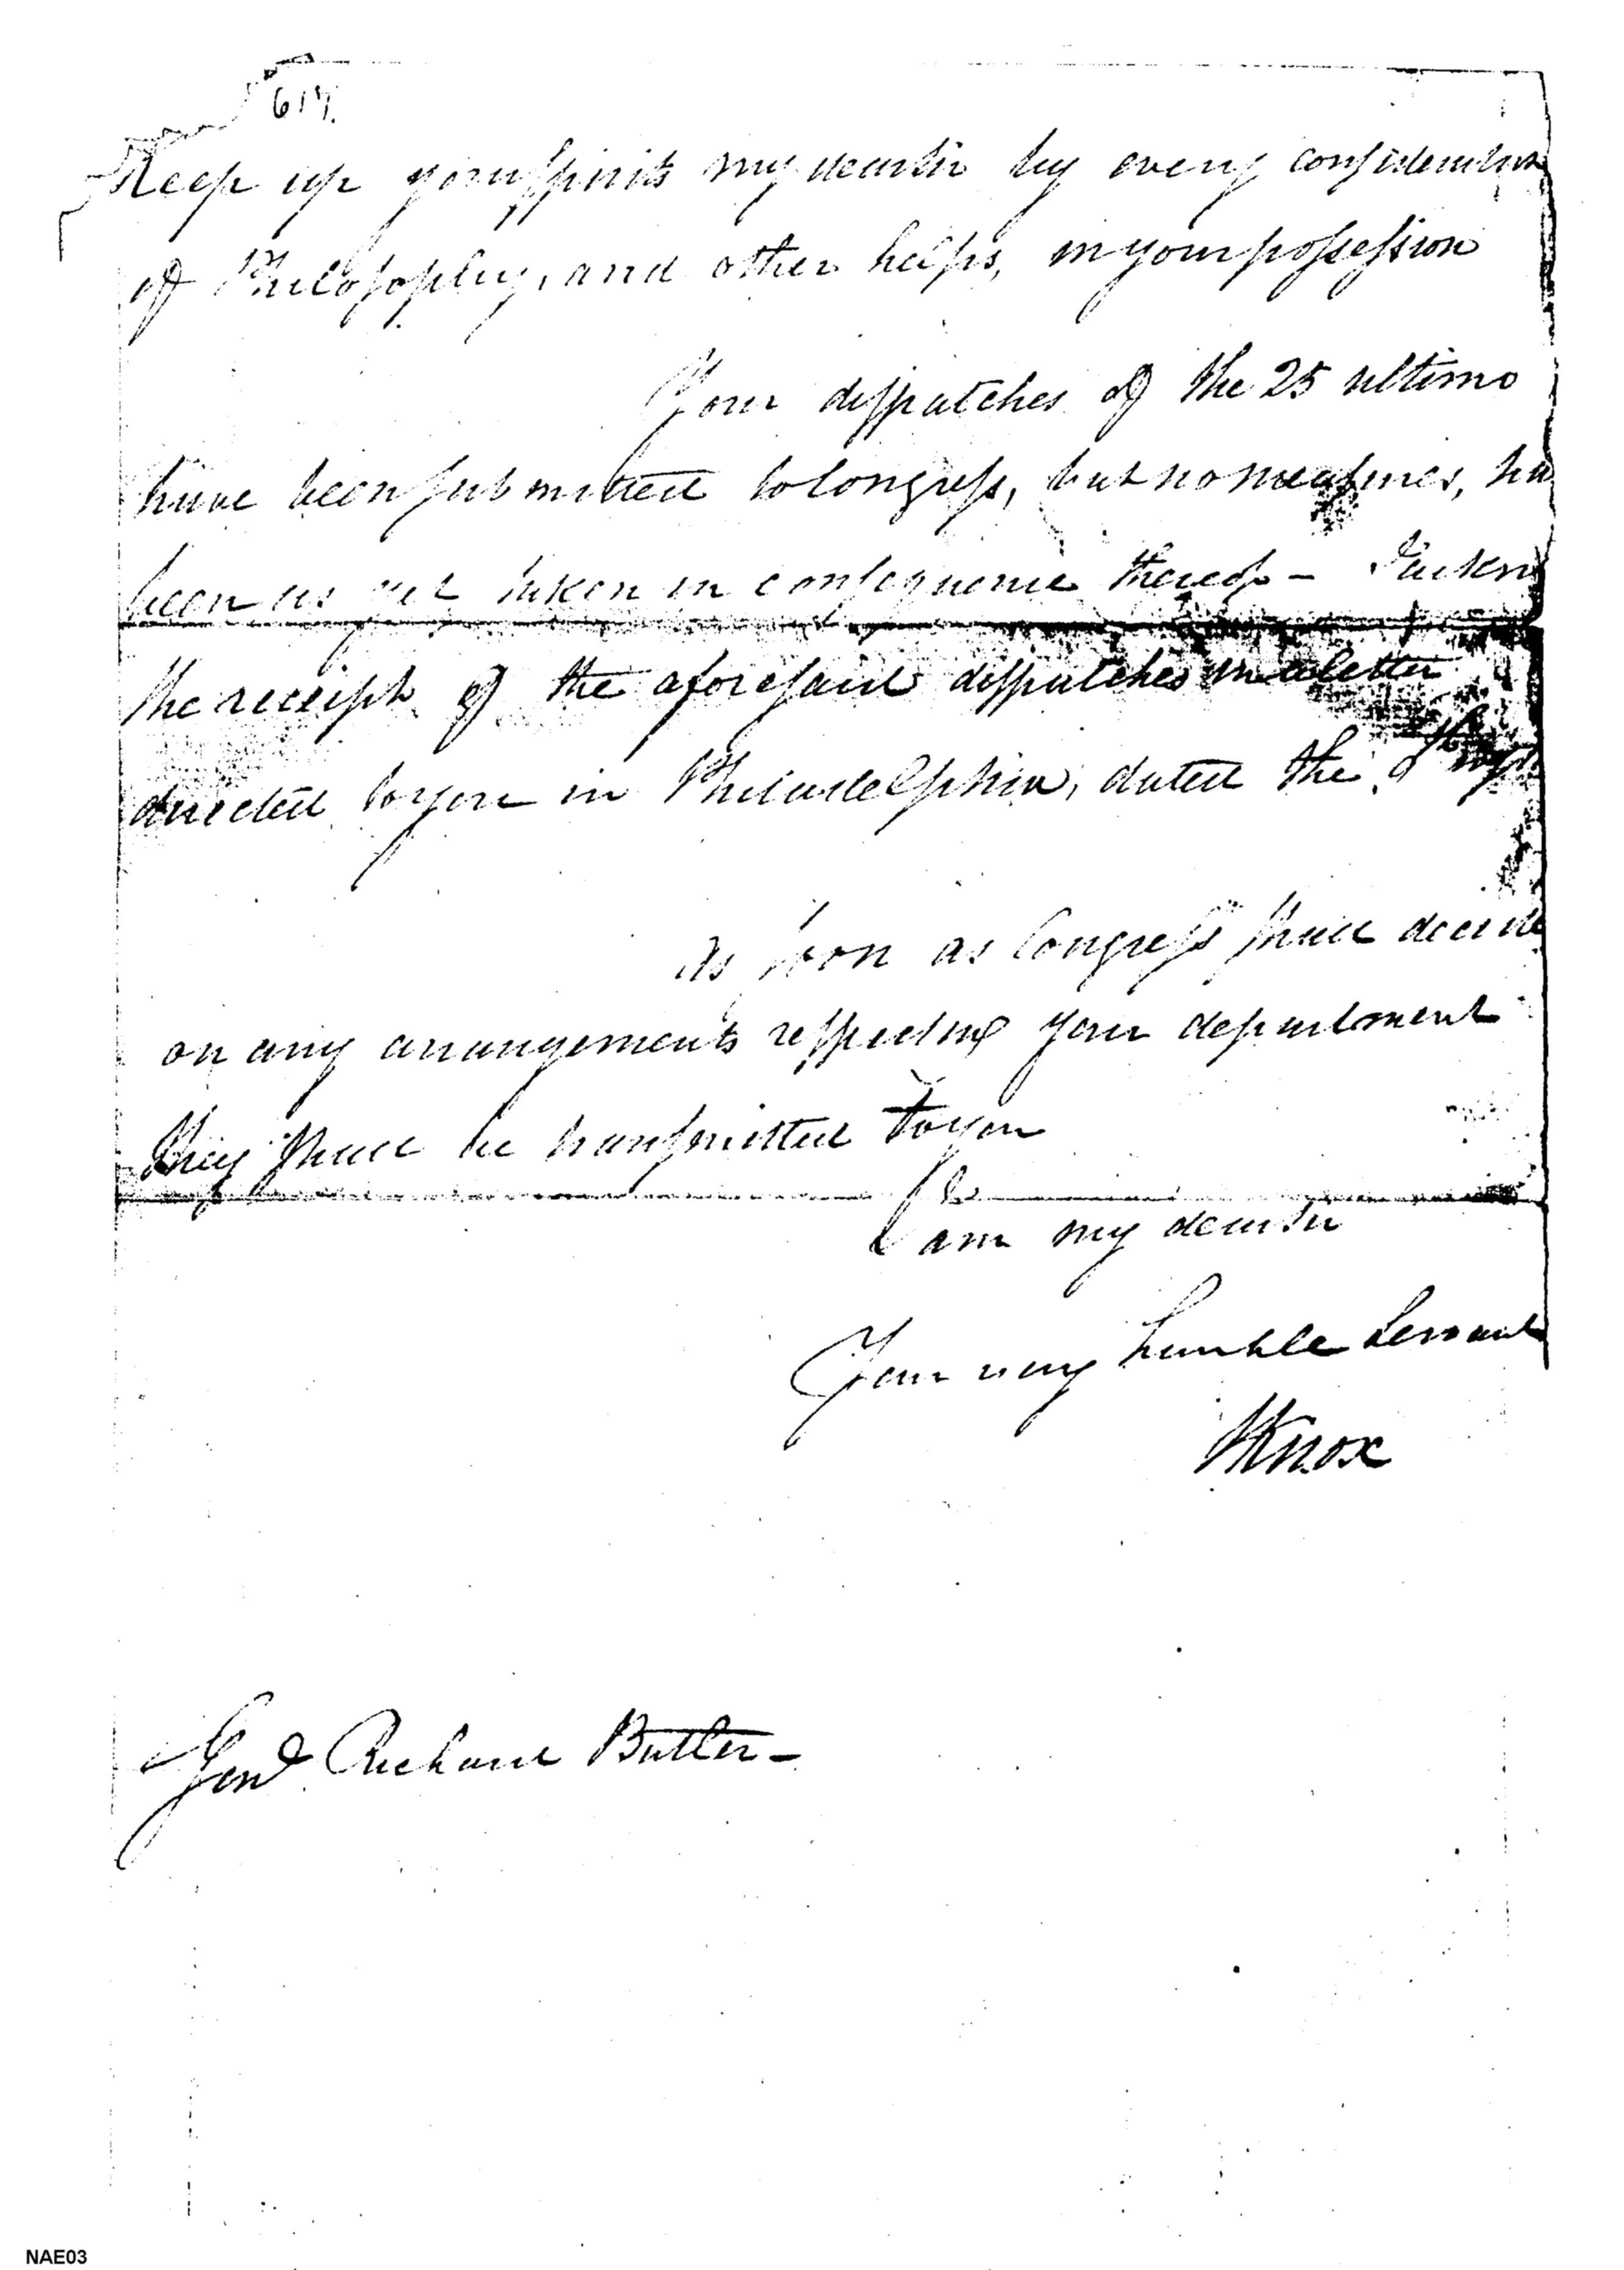 617.
Keep up your spirits my dear sir by every consideration
of Philosophy, and other helps, in your possession
Your dispatches of the 25 ultimo
have been submitted to Congress, but no measures, ha
been as yet taken in consequence thereof –
the receipt of the aforesaid dispatches in a letter
directed to you in Philadelphia, dated the
As soon as Congress shall decide
on any arrangements respecting your department
they shall be transmitted to you
I am my dear sir
Your very humble Servant
HKnox
Genl Richard Butler –
NAE03